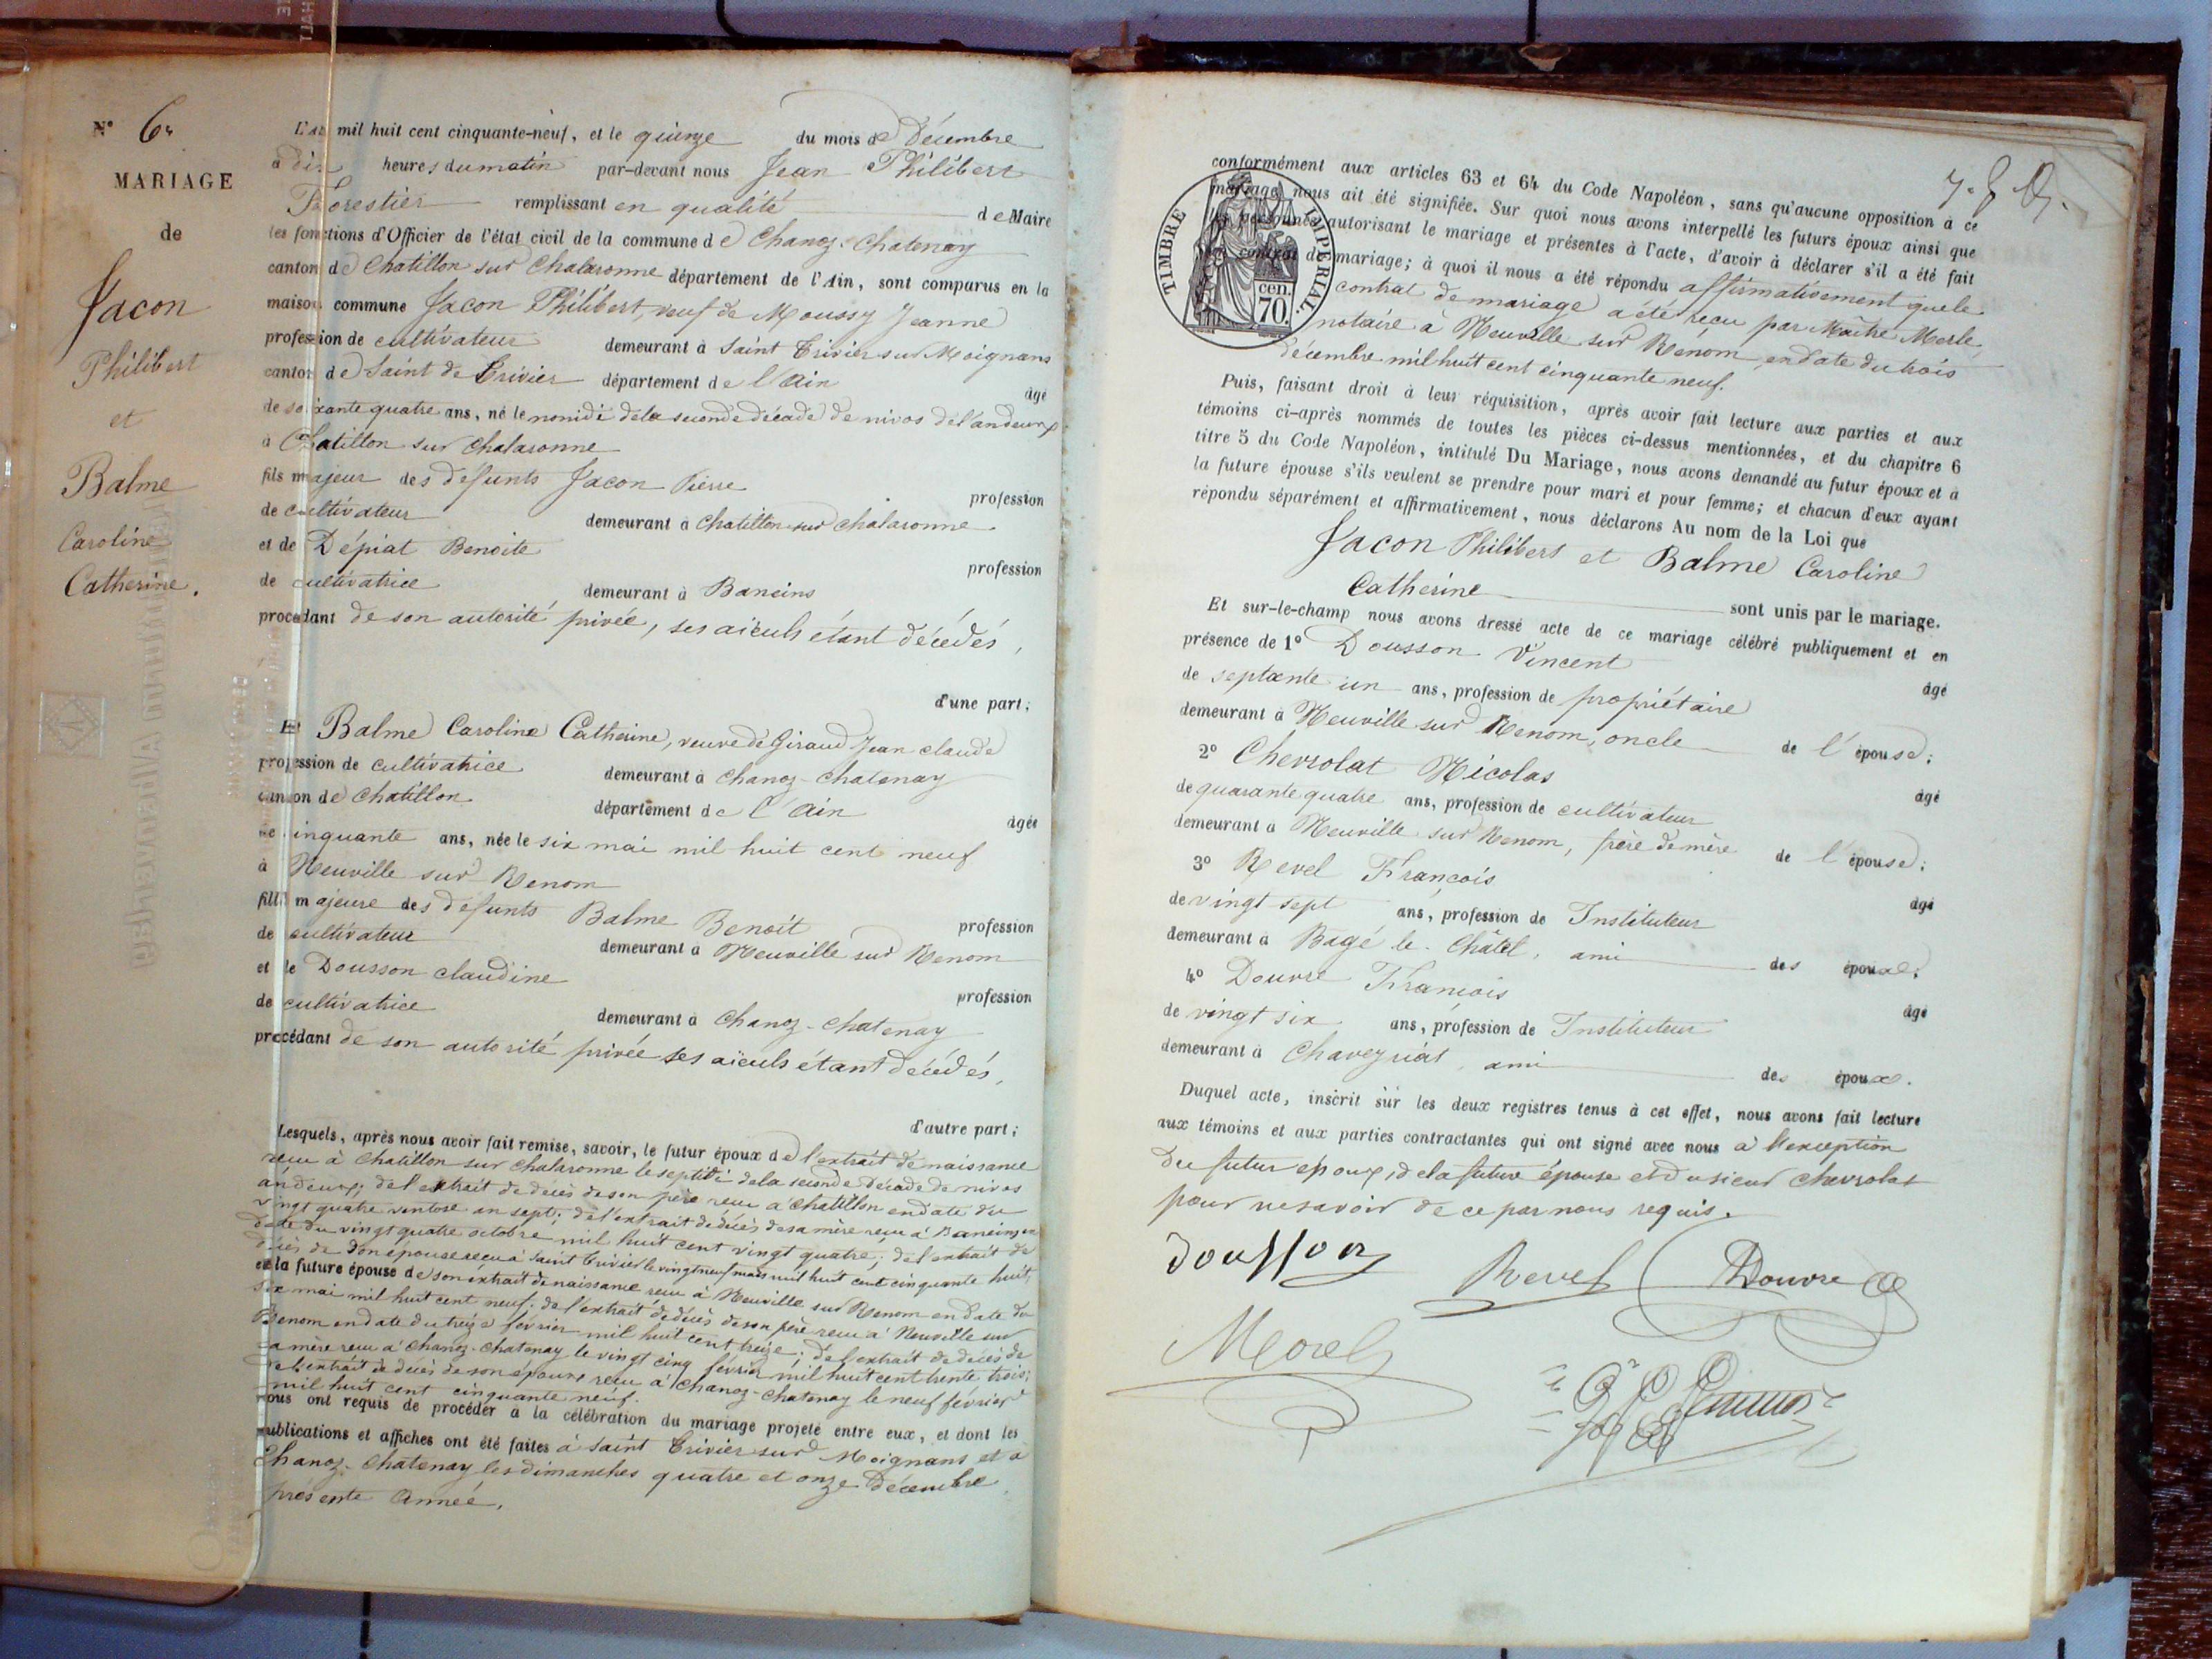 N° 6.
MARIAGE
de
Jacon
Philibert
et
Balme
Caroline
Catherine.
L'an mil huit cent cinquante-neuf, et le quinze du mois de Décembre
à dix heures du matin par-devant nous Jean Philibert
Forestier remplissant en qualité de Maire
les fonctions d'Officier de l'état civil de la commune de Chanoz-Chatenay
canton de Chatillon sur Chalaronne département de l'Ain, sont comparus en la
maison commune Jacon Philibert, veuf de Moussy Jeanne
profession de cultivateur demeurant à Saint Trivier sur Moignans
canton de Saint de Trivier département de l'Ain âgé
de soixante quatre ans, né le nonidi de la seconde décade de nivos de l'an deux
à Chatillon sur Chalaronne
fils majeur des défunts Jacon Pierre profession
de cultivateur demeurant à Chatillon sur Chalaronne
et de Dépiat Benoite profession
de cultivatrice demeurant à Baneins
procédant de son autorité privée, ses aïeuls étant décédés,
d'une part;
Et Balme Caroline Catherine, veuve de Giraud Jean claude
profession de cultivatrice demeurant à Chanoz-Chatenay
canton de Chatillon département de l'Ain âgée
de cinquante ans, née le six mai mil huit cent neuf
à Neuville sur Renom
fille majeure des défunts Balme Benoit profession
de cultivateur demeurant à Neuville sur Renom
et de Dousson claudine profession
de cultivatrice demeurant à Chanoz-Chatenay
procédant de son autorité privée ses aïeuls étant décédés,
d'autre part;
Lesquels, après nous avoir fait remise, savoir, le futur époux de l'extrait de naissance
reçu à Chatillon sur Chalaronne le septidi de la seconde décade de nivos
an deux; de l'extrait de décès de son père reçu à Chatillon en date du
vingt quatre ventose an sept; de l'extrait de décès de sa mère reçu à Baneins en
date du vingt quatre octobre mil huit cent vingt quatre; de l'extrait de
décès de son épouse reçu à Saint Trivier le vingt neuf mars mil huit cent cinquante huit;
et la future épouse de son extrait de naissance reçu à Neuville sur Renom en date du
six mai mil huit cent neuf; de l'extrait de décès de son père reçu à Neuville sur
Renom en date du treize février mil huit cent treize; de l'extrait de décès de
sa mère reçu à Chanoz-Chatenay le vingt cinq février mil huit cent trente trois;
de l'extrait de décès de son époux reçu à Chanoz-Chatenay le neuf février
mil huit cent cinquante neuf.
nous ont requis de procéder à la célébration du mariage projeté entre eux, et dont les
publications et affiches ont été faites à Saint Trivier sur Moignans et à
Chanoz-Chatenay les dimanches quatre et onze Décembre
présente Année.
conformément aux articles 63 et 64 du Code Napoléon, sans qu'aucune opposition à ce
mariage nous ait été signifiée. Sur quoi nous avons interpellé les futurs époux ainsi que
les personnes autorisant le mariage et présentes à l'acte, d'avoir à déclarer s'il a été fait
contrat de mariage; à quoi il nous a été répondu affirmativement que le
contrat de mariage a été reçu par Maître Merle,
notaire à Neuville sur Renom, en date du trois
décembre mil huit cent cinquante neuf.
TIMBRE IMPÉRIAL.
cen.
70.
Puis, faisant droit à leur réquisition, après avoir fait lecture aux parties et aux
témoins ci-après nommés de toutes les pièces ci-dessus mentionnées, et du chapitre 6
titre 5 du Code Napoléon, intitulé Du Mariage, nous avons demandé au futur époux et à
la future épouse s'ils veulent se prendre pour mari et pour femme; et chacun d'eux ayant
répondu séparément et affirmativement, nous déclarons Au nom de la Loi que
Jacon Philibert et Balme Caroline
Catherine sont unis par le mariage.
Et sur-le-champ nous avons dressé acte de ce mariage célébré publiquement et en
présence de 1° Dousson Vincent âgé
de septante un ans, profession de propriétaire
demeurant à Neuville sur Renom, oncle de l'épouse;
2° Chevrolat Nicolas âgé
de quarante quatre ans, profession de cultivateur
demeurant à Neuville sur Renom, frère de mère de l'épouse;
3° Revel François âgé
de vingt sept ans, profession de Instituteur
demeurant à Bagé le Châtel, ami des époux;
4° Douvre François âgé
de vingt six ans, profession de Instituteur
demeurant à Chaveyriat, ami des époux.
Duquel acte, inscrit sur les deux registres tenus à cet effet, nous avons fait lecture
aux témoins et aux parties contractantes qui ont signé avec nous à l'exception
du futur époux, de la future épouse et du sieur Chevrolat
pour ne savoir de ce par nous requis.
Dousson
Revel
Douvre
Morel